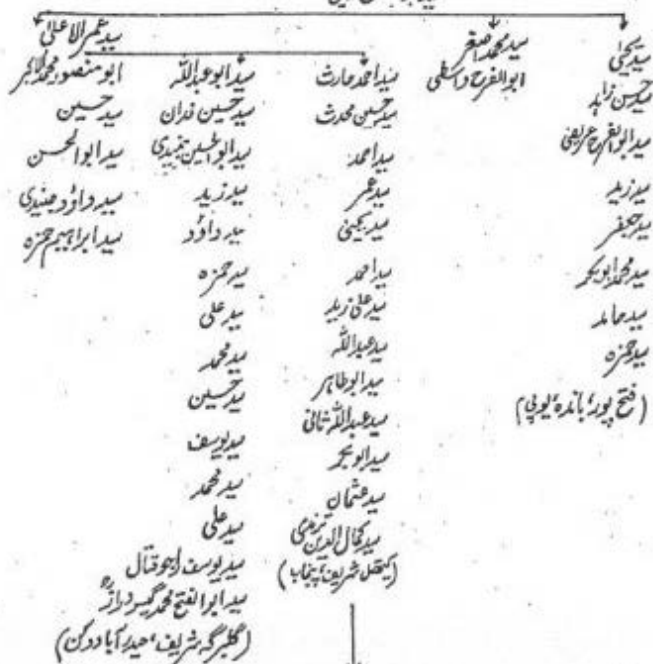 سید یحییٰ
سید حسن زاہد
سید ابوالفرح عریضی
سید زید
سید جعفر
سید محمد ابوبکر
سید حامد
سید حمزہ
(فتح پور، باندہ، یوپی)
سید محمد اصغر
ابوالفرح واسطی
سید عمر الاعلیٰ
سید احمد حارث
سید حسین محدث
سید احمد
سید عمر
سید یحییٰ
سید احمد
سید علی زید
سید عبداللہ
سید ابوطاہر
سید عبداللہ ثانی
سید ابوبکر
سید عثمان
سید کمال الدین ترمذی
(کیتھل شریف، پنجاب)
سید ابوعبداللہ
سید حسین فدان
سید ابوالحسین جنیدی
سید زید
سید داؤد
سید حمزہ
سید علی
سید محمد
سید حسین
سید یوسف
سید محمد
سید علی
سید یوسف راجو قتال
سید ابوالفتح محمد گیسو درازؒ
(گلبرگہ شریف، حیدرآباد دکن)
ابو منصور محمد الاکبر
سید حسین
سید ابوالحسن
سید داؤد جنیدی
سید ابراہیم حمزہ